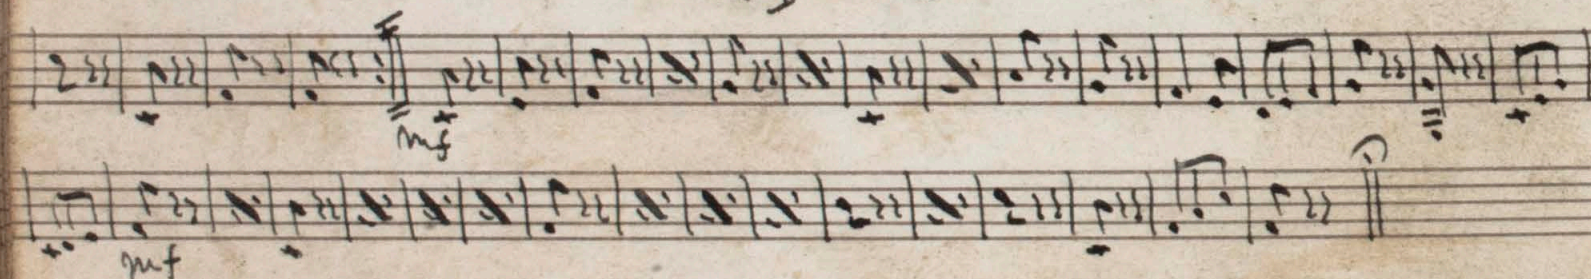 mf
mf